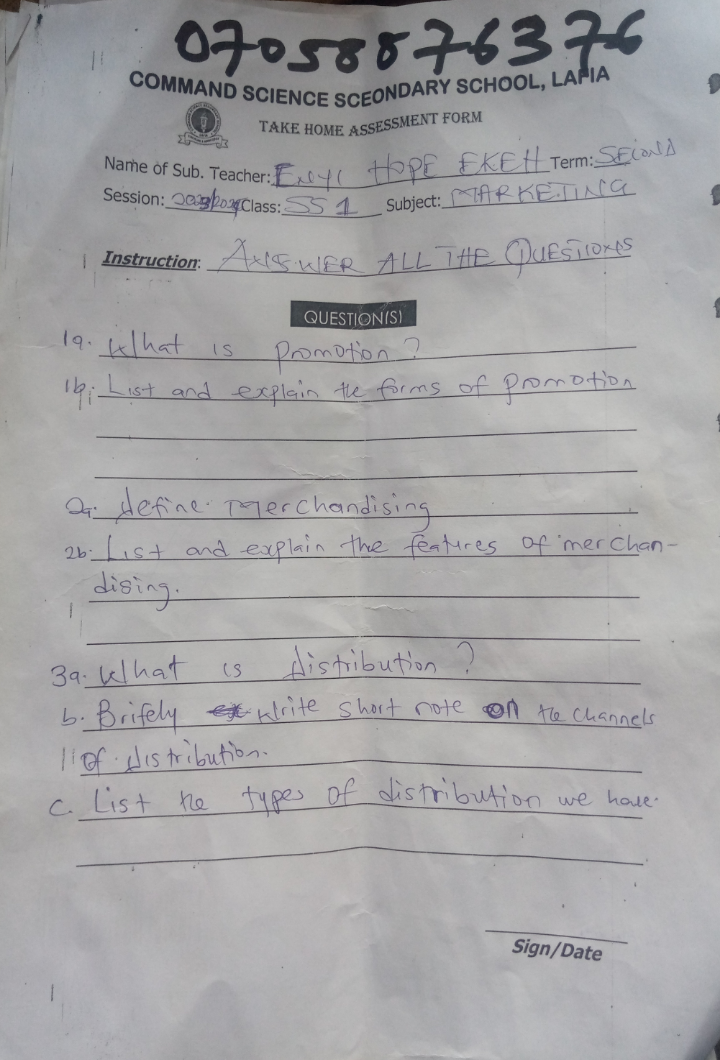 07058876376
COMMAND SCIENCE SCEONDARY SCHOOL, LAFIA
TAKE HOME ASSESSMENT FORM
Name of Sub. Teacher: HOPE EKEH Term: SECOND
Session: Class: SS 1 Subject: MARKETING
Instruction: ANSWER ALL THE QUESTIONS
QUESTION(S)
1a. What is promotion?
1b. List and explain the forms of promotion
2a. define merchandising
2b. List and explain the features of merchan-
dising.
3a. What is distribution?
b. Brifely write short note on the channels
of distribution.
c. List the types of distribution we have.
Sign/Date